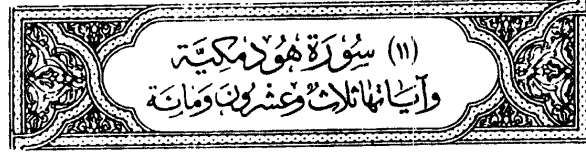 (١١) سُورَة هُود مَكيَّة
وَآيَاتُهَا ثَلَاثٌ وَعِشْرُونَ وَمَائَة